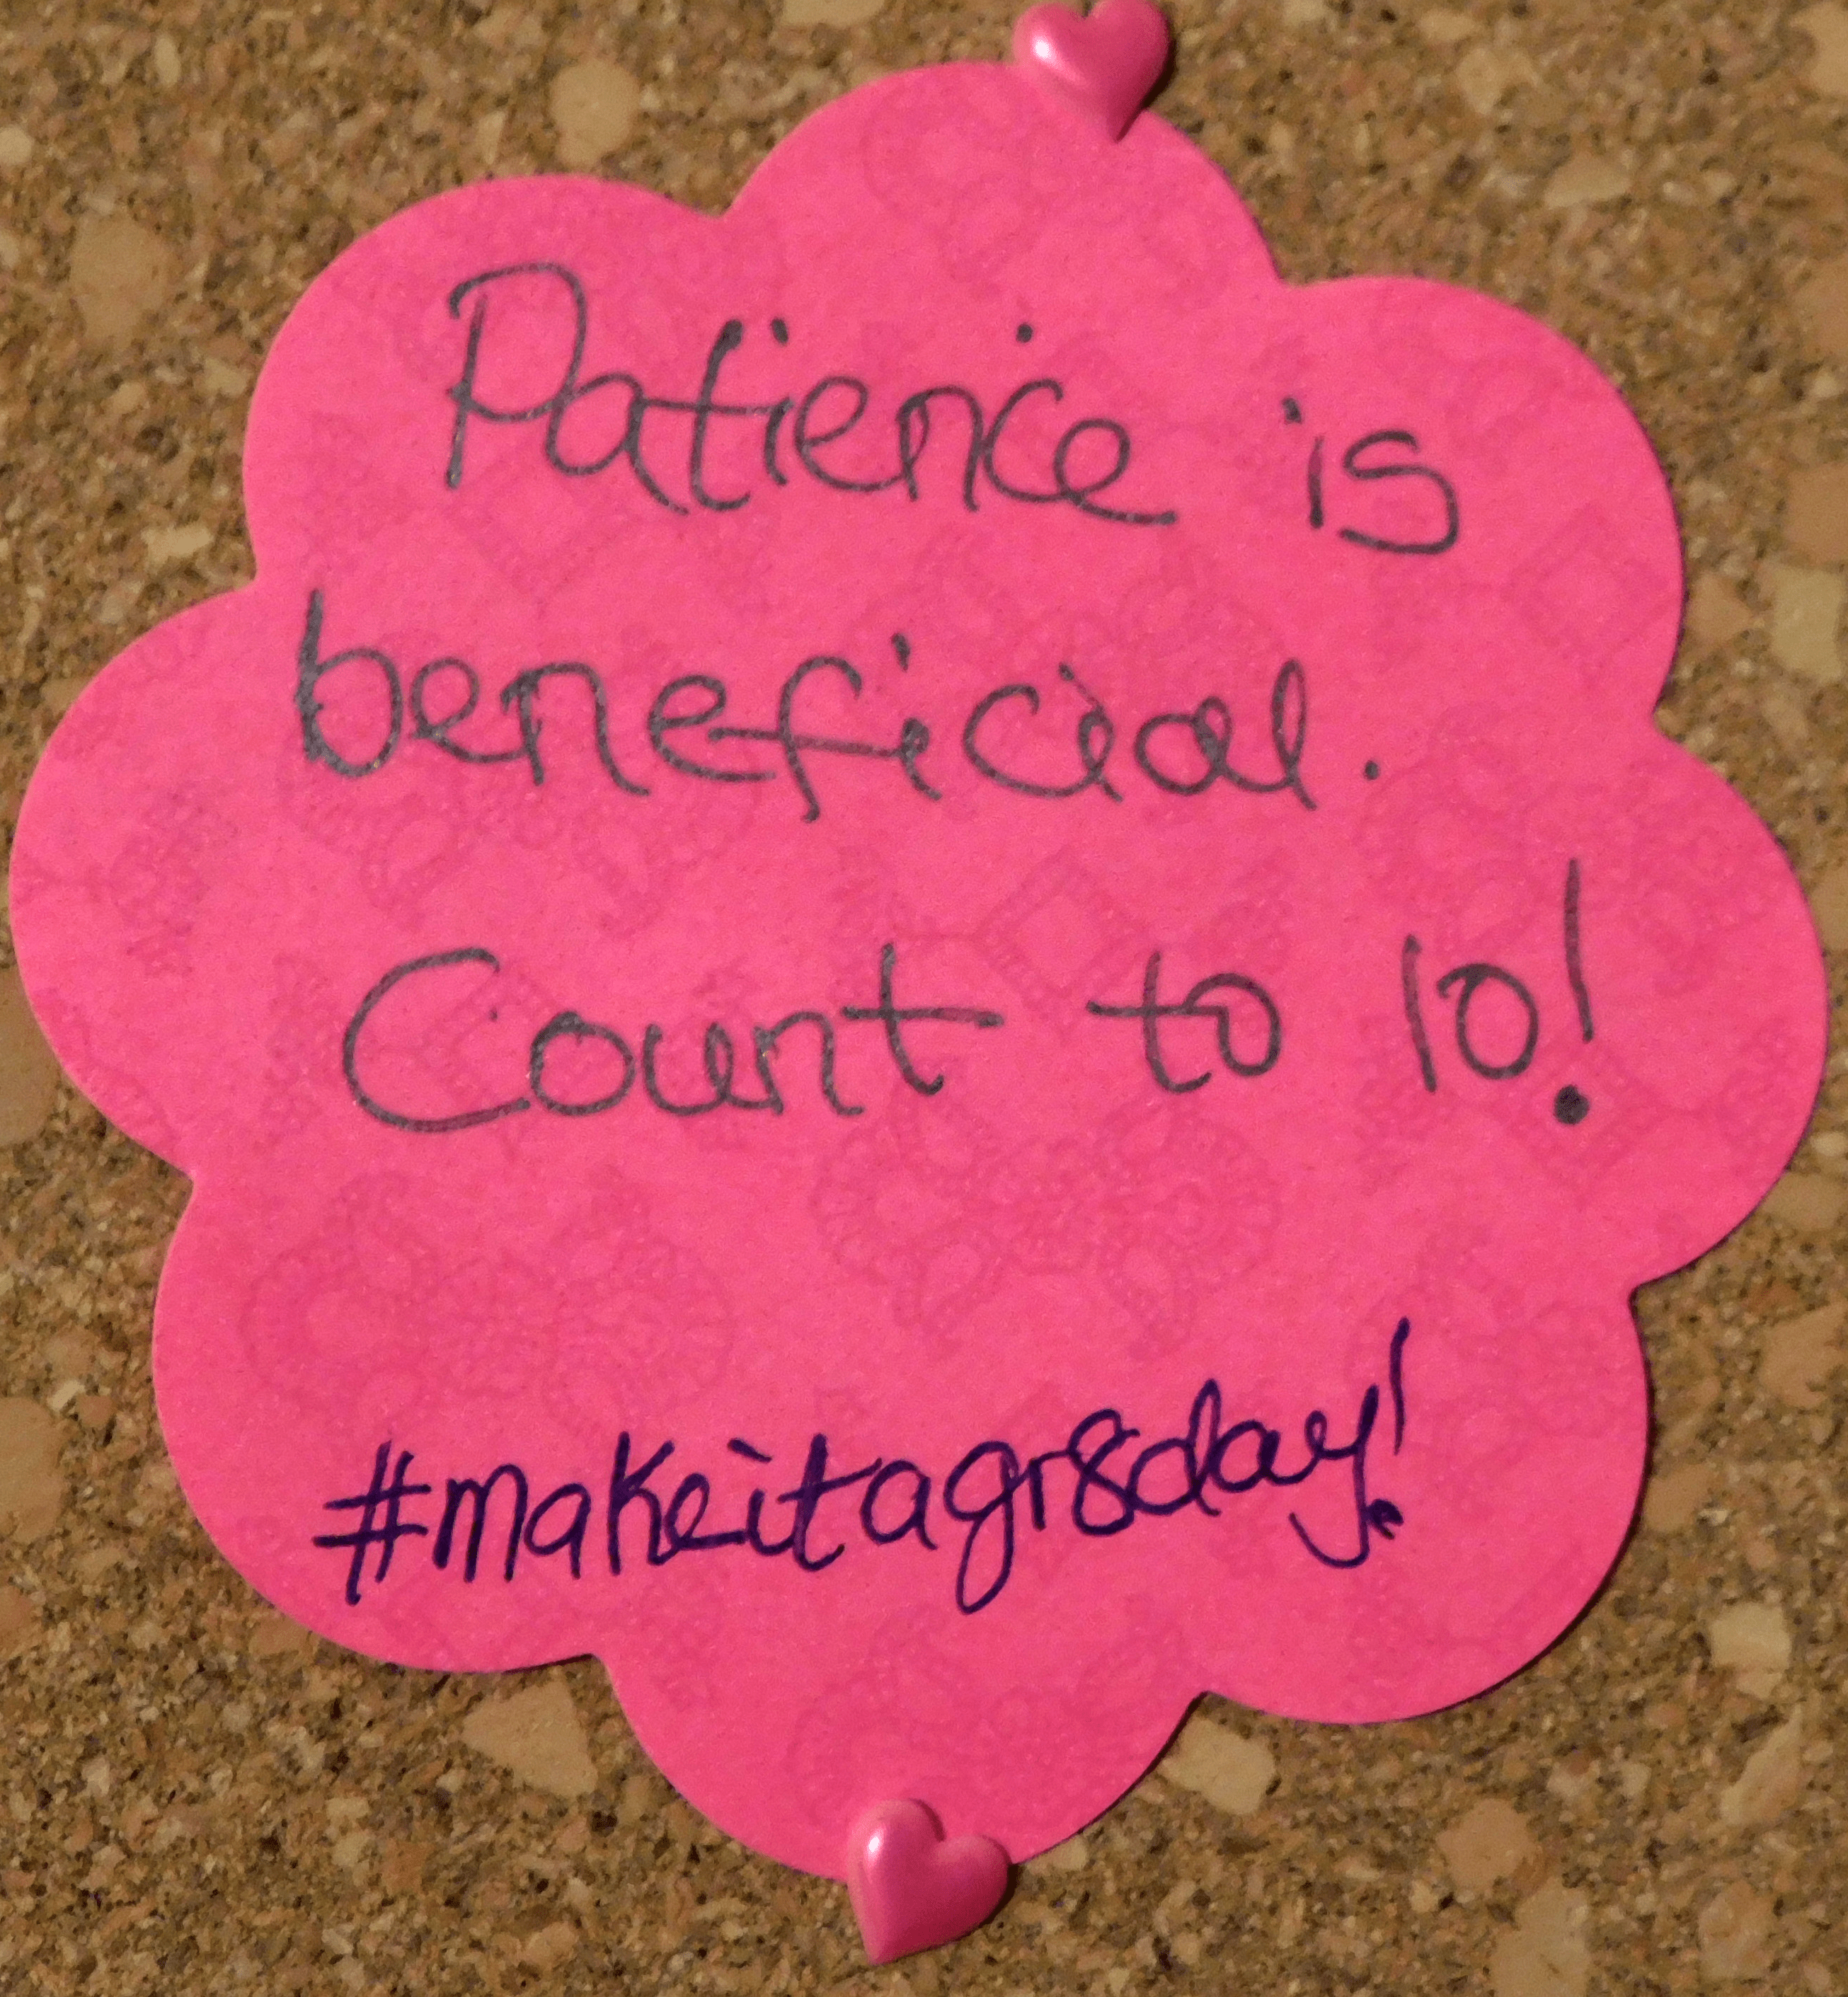 Patience is
beneficial.
Count to 10!
#makeitagr8day!